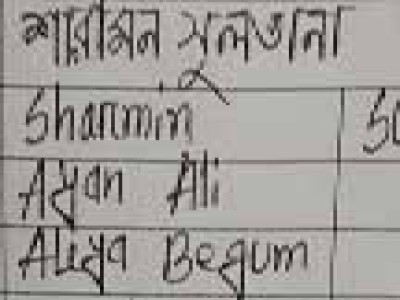 শারমিন সুলতানা
Sharmin
Ayan Ali
Aliya Begum